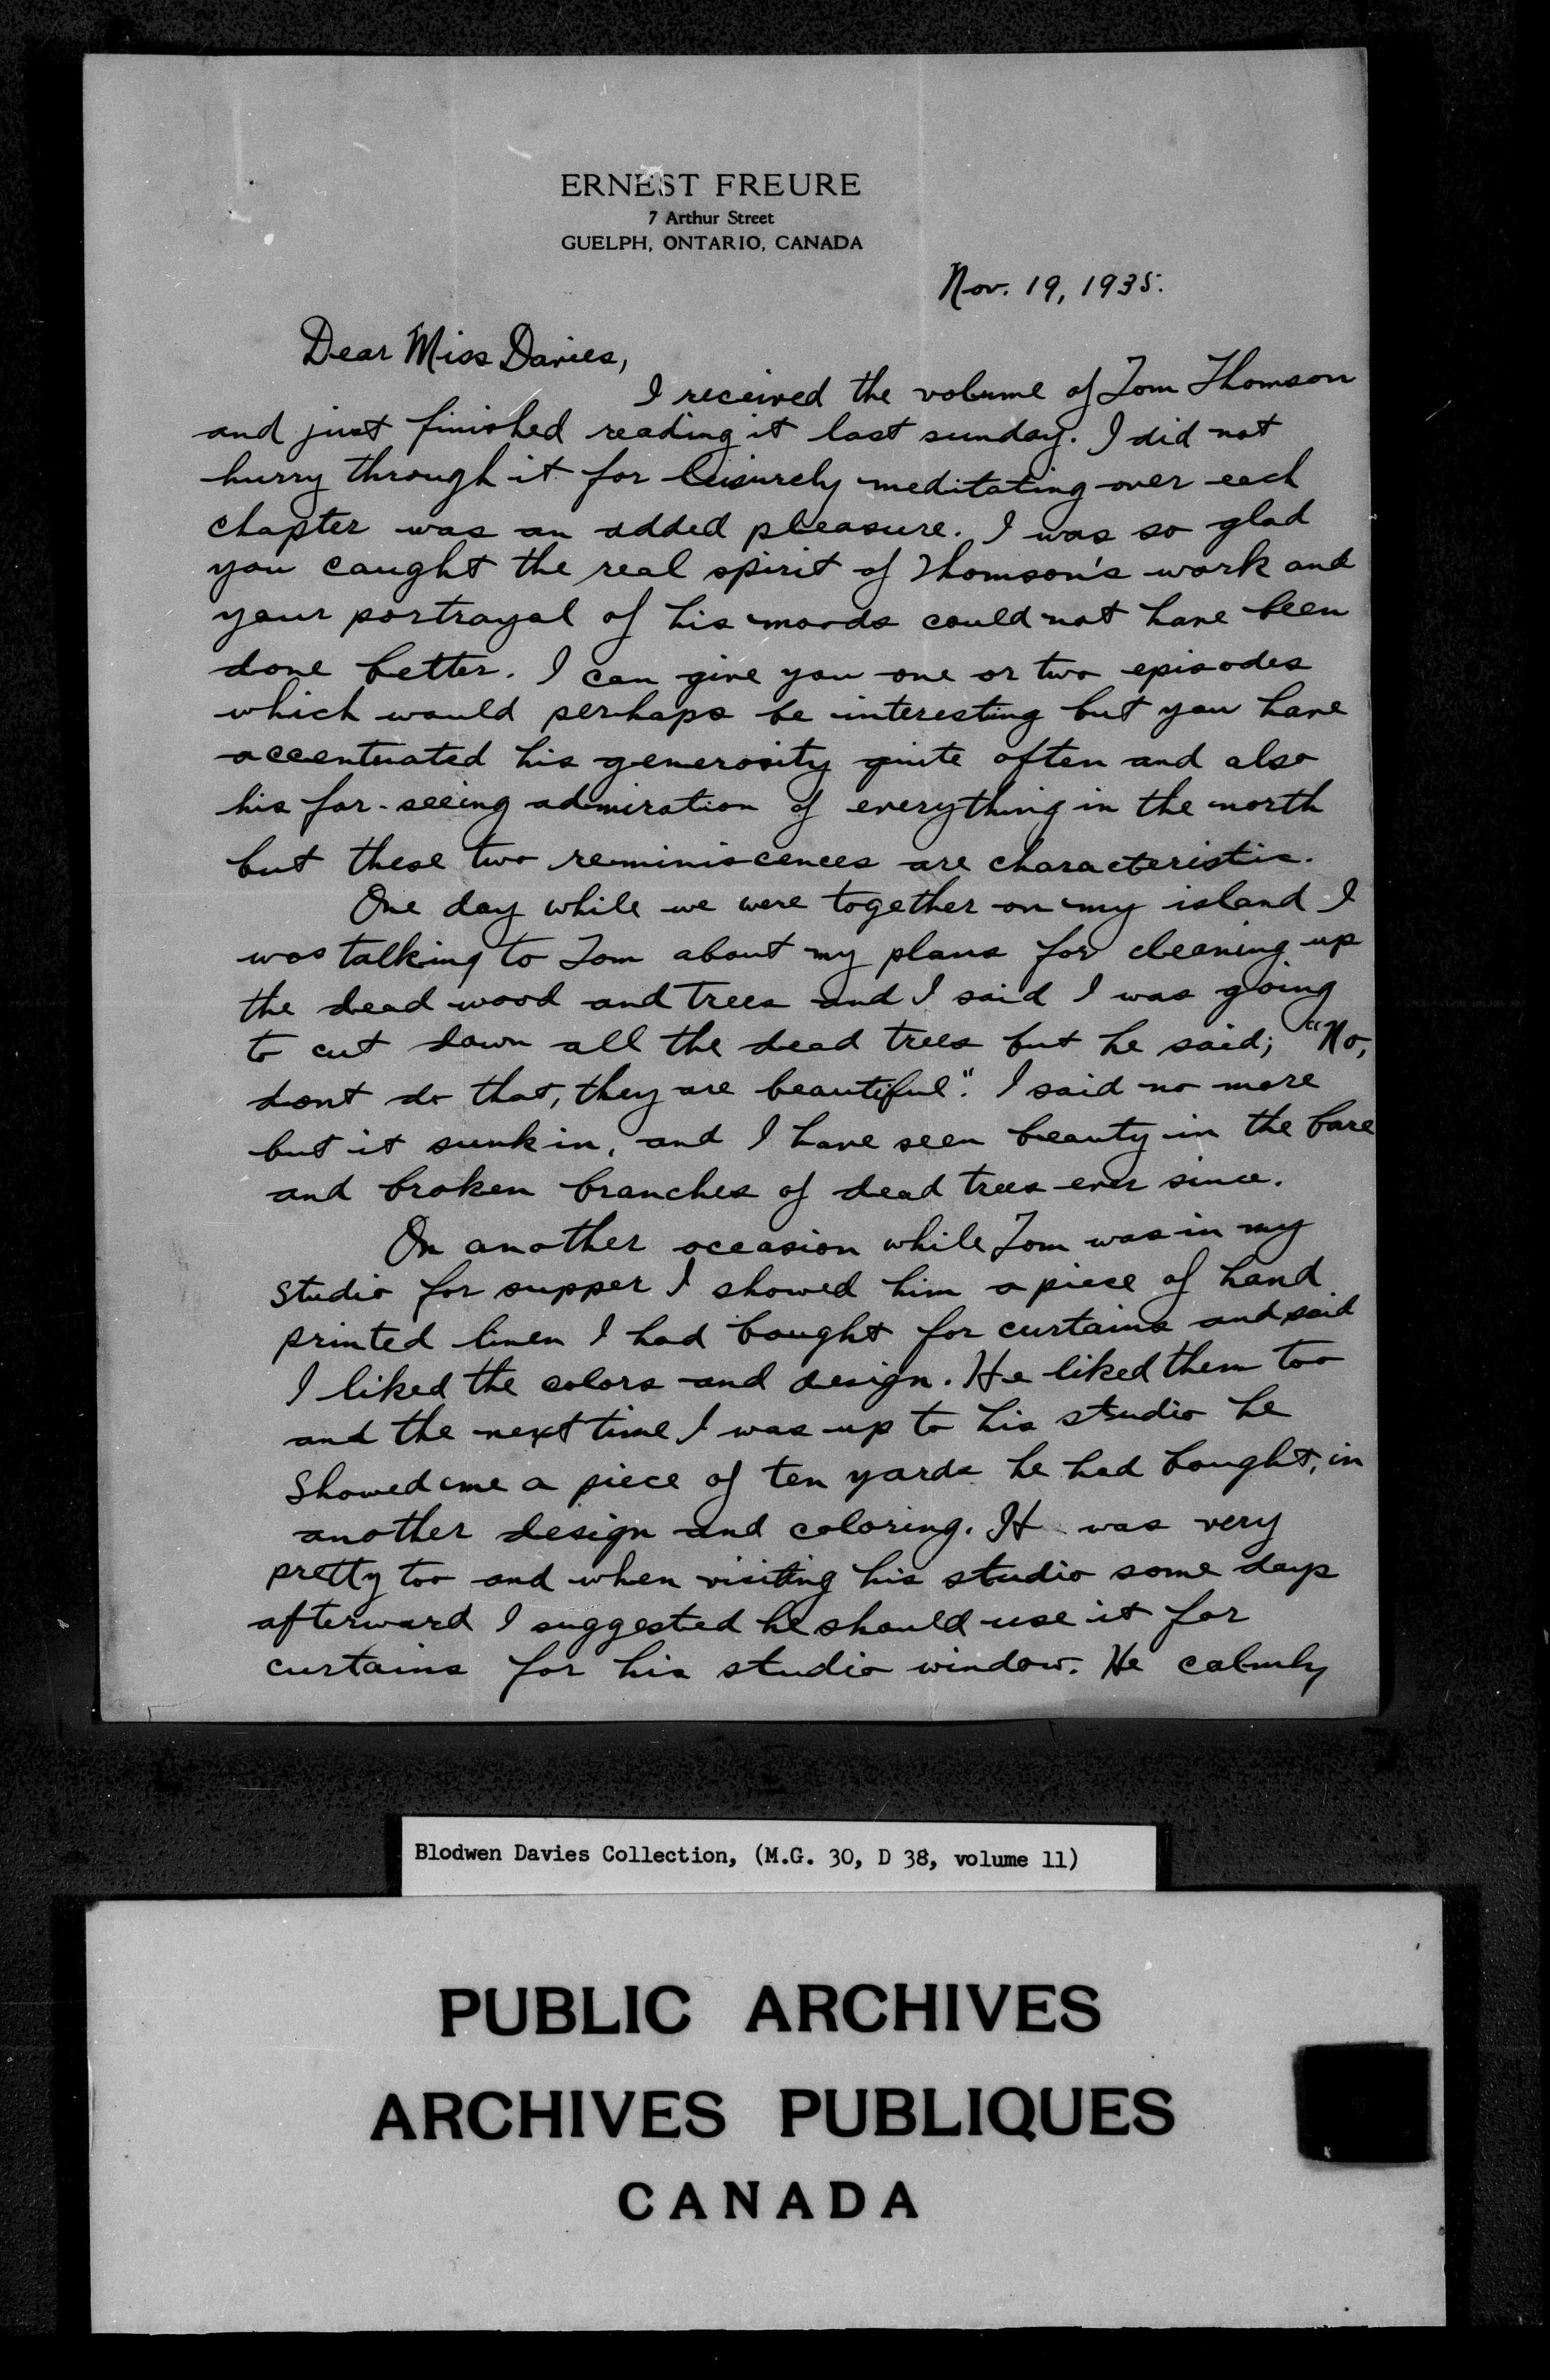 ERNEST FREURE
7 Arthur Street
GUELPH, ONTARIO, CANADA
Nov. 19, 1935.
Dear Miss Davies,
I received the volume of Tom Thomson
and just finished reading it last sunday. I did not
hurry through it for leisurely meditating over each
chapter was an added pleasure. I was so glad
you caught the real spirit of Thomson's work and
your portrayal of his moods could not have been
done better. I can give you one or two episodes
which would perhaps be interesting but you have
accentuated his generosity quite often and also
his far-seeing admiration of everything in the north
but these two reminiscences are characteristic.
One day while we were together on my island I
was talking to Tom about my plans for cleaning up
the dead wood and trees and I said I was going
to cut down all the dead trees but he said; "No,
dont do that, they are beautiful". I said no more
but it sunk in, and I have seen beauty in the bare
and broken branches of dead trees ever since.
On another occasion while Tom was in my
studio for supper I showed him a piece of hand
printed linen I had bought for curtains and said
I liked the colors and design. He liked them too
and the next time I was up to his studio he
showed me a piece of ten yards he had bought, in
another design and coloring. It was very
pretty too and when visiting his studio some days
afterward I suggested he should use it for
curtains for his studio window. He calmly
Blodwen Davies Collection, (M.G. 30, D 38, volume 11)
PUBLIC ARCHIVES
ARCHIVES PUBLIQUES
CANADA